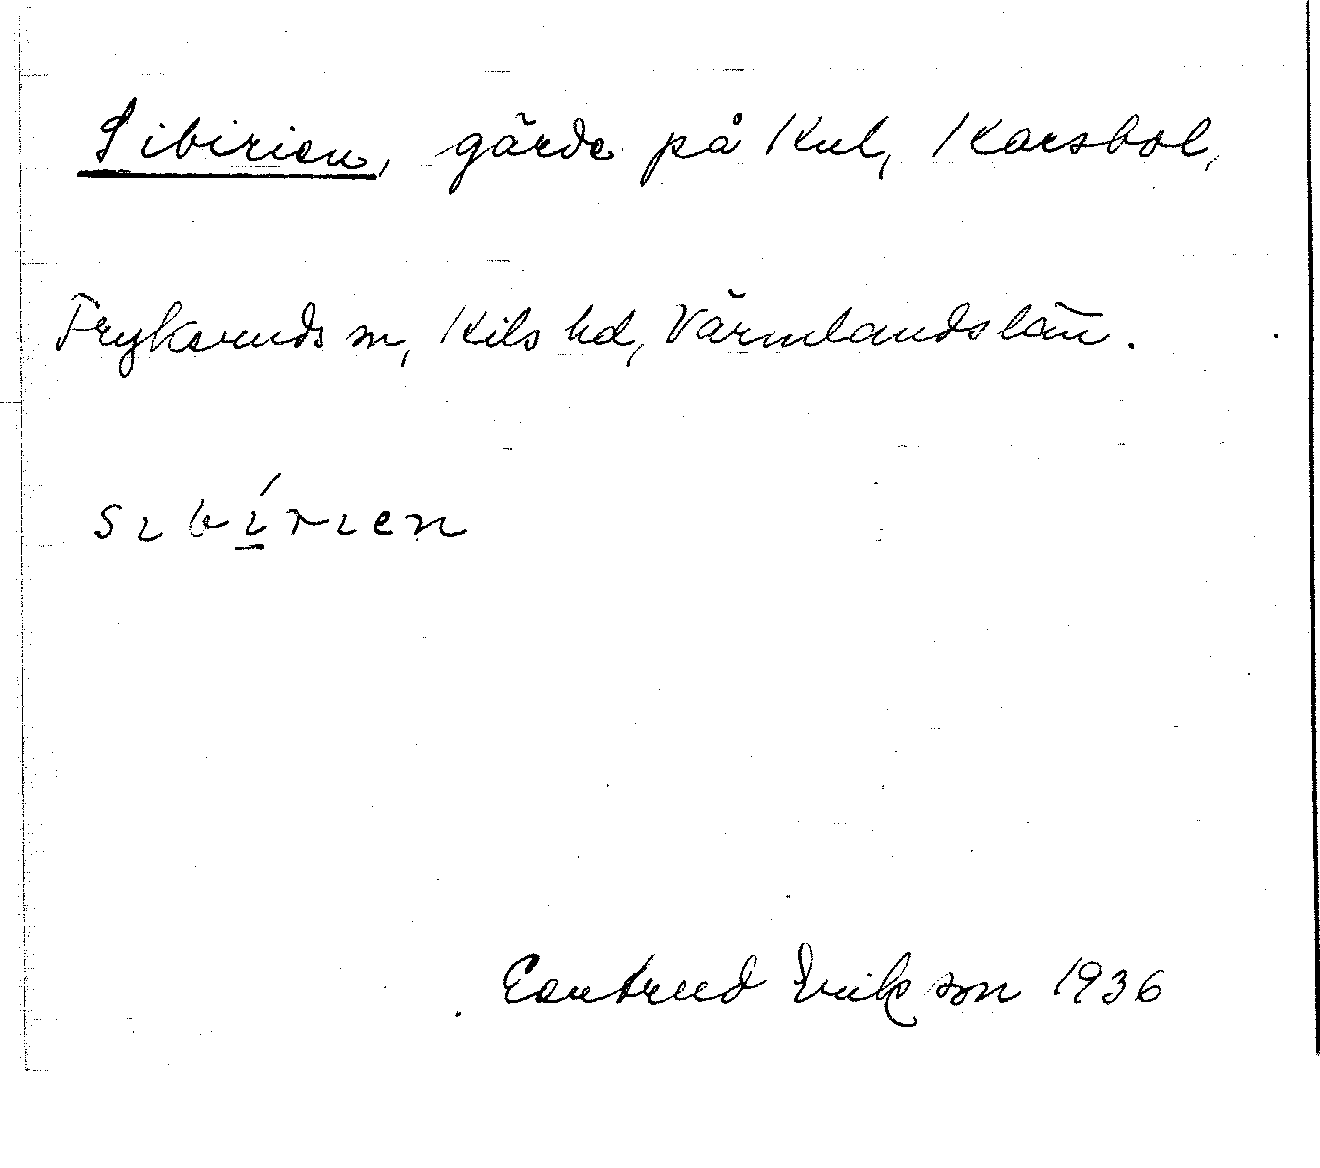 Sibirien, gärde på Kul, Karsbol,
Frykeruds sn, Kils hd, Värmlands län.
sɩbɩ́rɩen
Erikson 1936